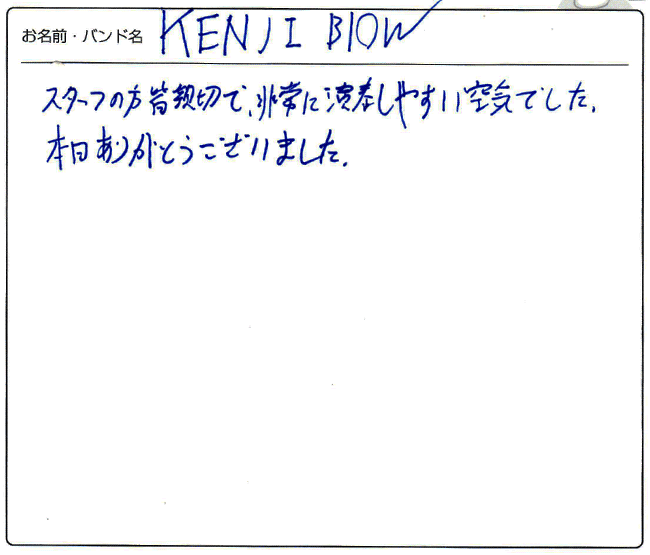 お名前・バンド名 KENJI BLOW
スタッフの方皆親切で、非常に演奏しやすい空気でした。
本日ありがとうございました。